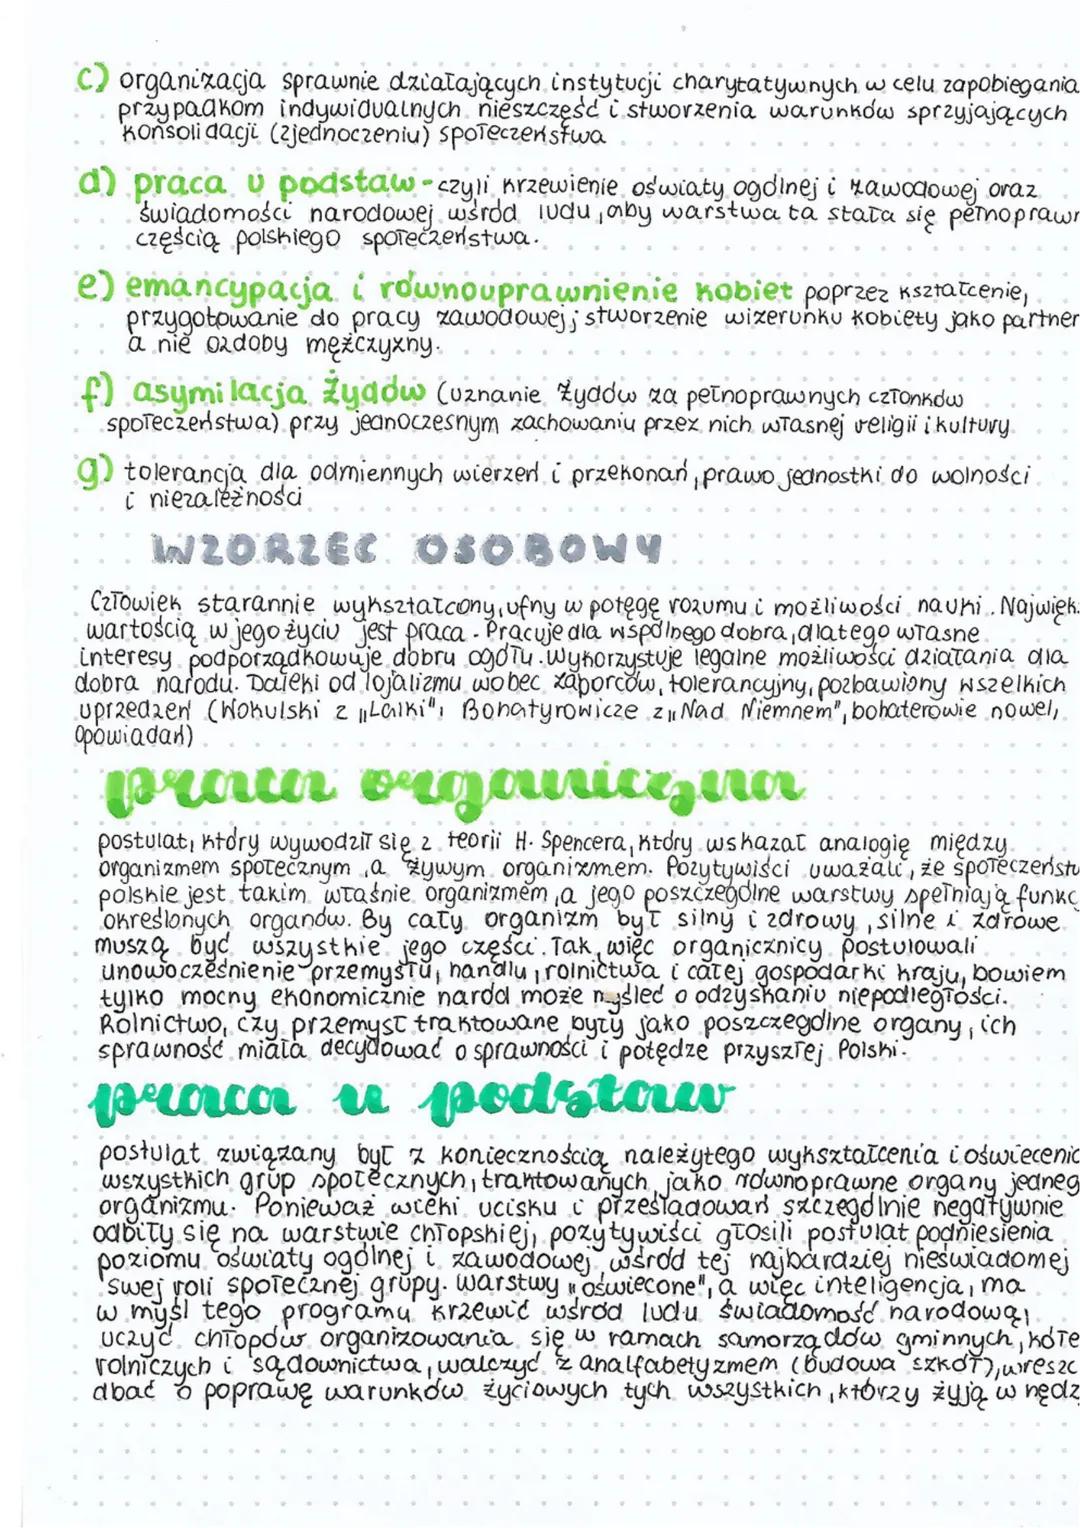 c) organizacja sprawnie działających instytucji charytatywnych w celu zapobiegania
przypadkom indywidualnych nieszczęść i stworzenia warunków sprzyjających
konsolidacji (zjednoczeniu) społeczeństwa
d) praca u podstaw - czyli krzewienie oświaty ogólnej i zawodowej oraz
świadomości narodowej wśród ludu, aby warstwa ta stała się pełnopraw
częścią polskiego społeczeństwa.
e) emancypacja i równouprawnienie kobiet poprzez kształcenie,
przygotowanie do pracy zawodowej; stworzenie wizerunku kobiety jako partner
a nie ozdoby mężczyzny.
f) asymilacja Żydów (uznanie Żydów za pełnoprawnych członków
społeczeństwa) przy jednoczesnym zachowaniu przez nich własnej religii i kultury
g) tolerancja dla odmiennych wierzeń i przekonań, prawo jednostki do wolności
i niezależności
WZORZEC OSOBOWY
Człowiek starannie wykształcony, ufny w potęgę rozumu i możliwości nauki. Najwięk
wartością w jego życiu jest praca. Pracuje dla wspólnego dobra, dlatego własne
interesy podporządkowuje dobru ogółu. Wykorzystuje legalne możliwości działania dla
dobra narodu. Daleki od lojalizmu wobec zaborców, tolerancyjny, pozbawiony wszelkich
uprzedzeń (Wokulski z „Lalki", Bohatyrowicze z „Nad Niemnem", bohaterowie nowel,
opowiadań)
praca organiczna
postulat, który wywodził się z teorii H. Spencera, który wskazał analogię między
organizmem społecznym, a żywym organizmem. Pozytywiści uważali, że społeczeństw
polskie jest takim właśnie organizmem, a jego poszczególne warstwy spełniają funkc
określonych organów. By cały organizm był silny i zdrowy, silne i zdrowe
muszą być wszystkie jego części. Tak więc organicznicy postulowali
unowocześnienie przemysłu, handlu, rolnictwa i całej gospodarki kraju, bowiem
tylko mocny ekonomicznie naród może myśleć o odzyskaniu niepodległości.
Rolnictwo, czy przemysł traktowane były jako poszczególne organy, ich
sprawność miała decydować o sprawności i potędze przyszłej Polski.
praca u podstaw
postulat związany był z koniecznością należytego wykształcenia i oświecenia
wszystkich grup społecznych, traktowanych jako równoprawne organy jedneg
organizmu. Ponieważ wieki ucisku i prześladowań szczególnie negatywnie
odbiły się na warstwie chłopskiej, pozytywiści głosili postulat podniesienia
poziomu oświaty ogólnej i zawodowej wśród tej najbardziej nieświadomej
swej roli społecznej grupy. Warstwy „oświecone", a więc inteligencja, ma
w myśl tego programu krzewić wśród ludu świadomość narodową,
uczyć chłopów organizowania się w ramach samorządów gminnych, kółe
rolniczych i sądownictwa, walczyć z analfabetyzmem (budowa szkół), wreszc
dbać o poprawę warunków życiowych tych wszystkich, którzy żyją w nędz